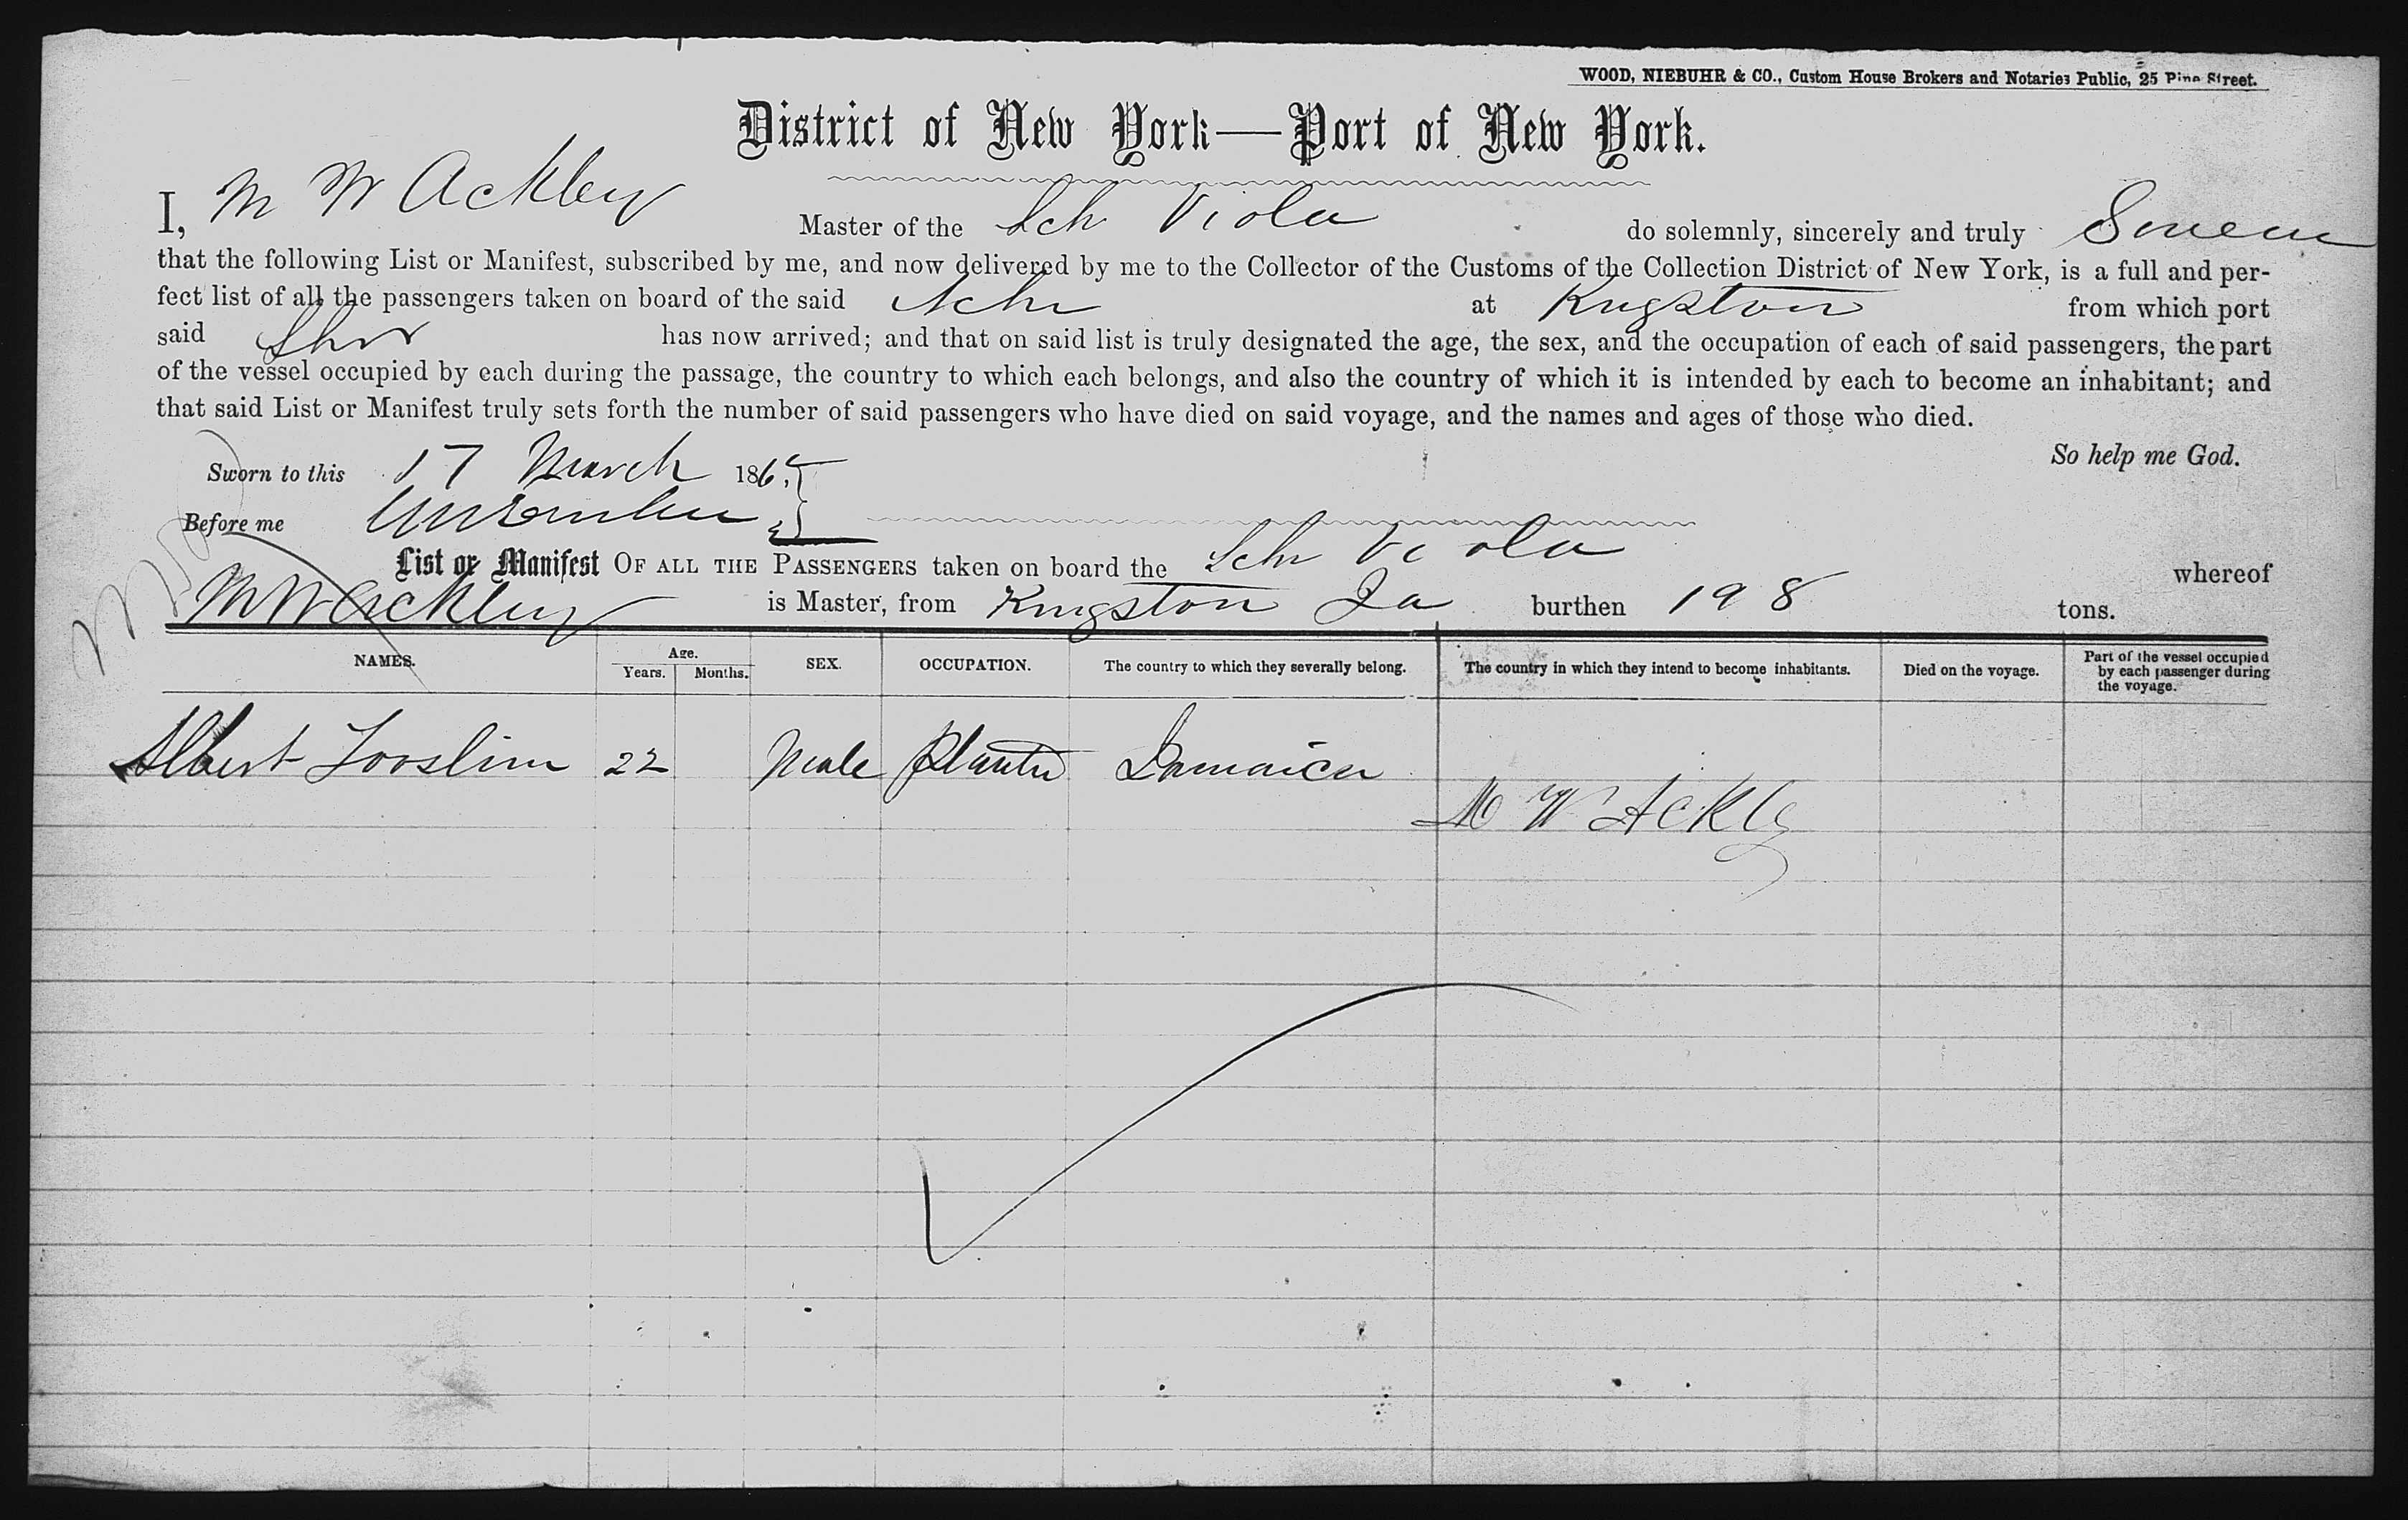 WOOD, NIEBUHR & CO., Custom House Brokers and Notaries Public, 25 Pine Street.
District of New York—Port of New York.
I, M W Ackley Master of the Sch Viola do solemnly, sincerely and truly
that the following List or Manifest, subscribed by me, and now delivered by me to the Collector of the Customs of the Collection District of New York, is a full and per-
fect list of all the passengers taken on board of the said Schr at Kingston from which port
said Schr has now arrived; and that on said list is truly designated the age, the sex, and the occupation of each of said passengers, the part
of the vessel occupied by each during the passage, the country to which each belongs, and also the country of which it is intended by each to become an inhabitant; and
that said List or Manifest truly sets forth the number of said passengers who have died on said voyage, and the names and ages of those who died.
So help me God.
Sworn to this 17 March 186
Before me
List or Manifest OF ALL THE PASSENGERS taken on board the Schr Viola whereof
M W Ackley is Master, from Kingston Ja burthen 198 tons.
NAMES. Age. Years. Months. SEX. OCCUPATION. The country to which they severally belong. The country in which they intend to become inhabitants. Died on the voyage. Part of the vessel occupied by each passenger during the voyage.
Albert 22 Male Planter Jamaica
M W Ackly